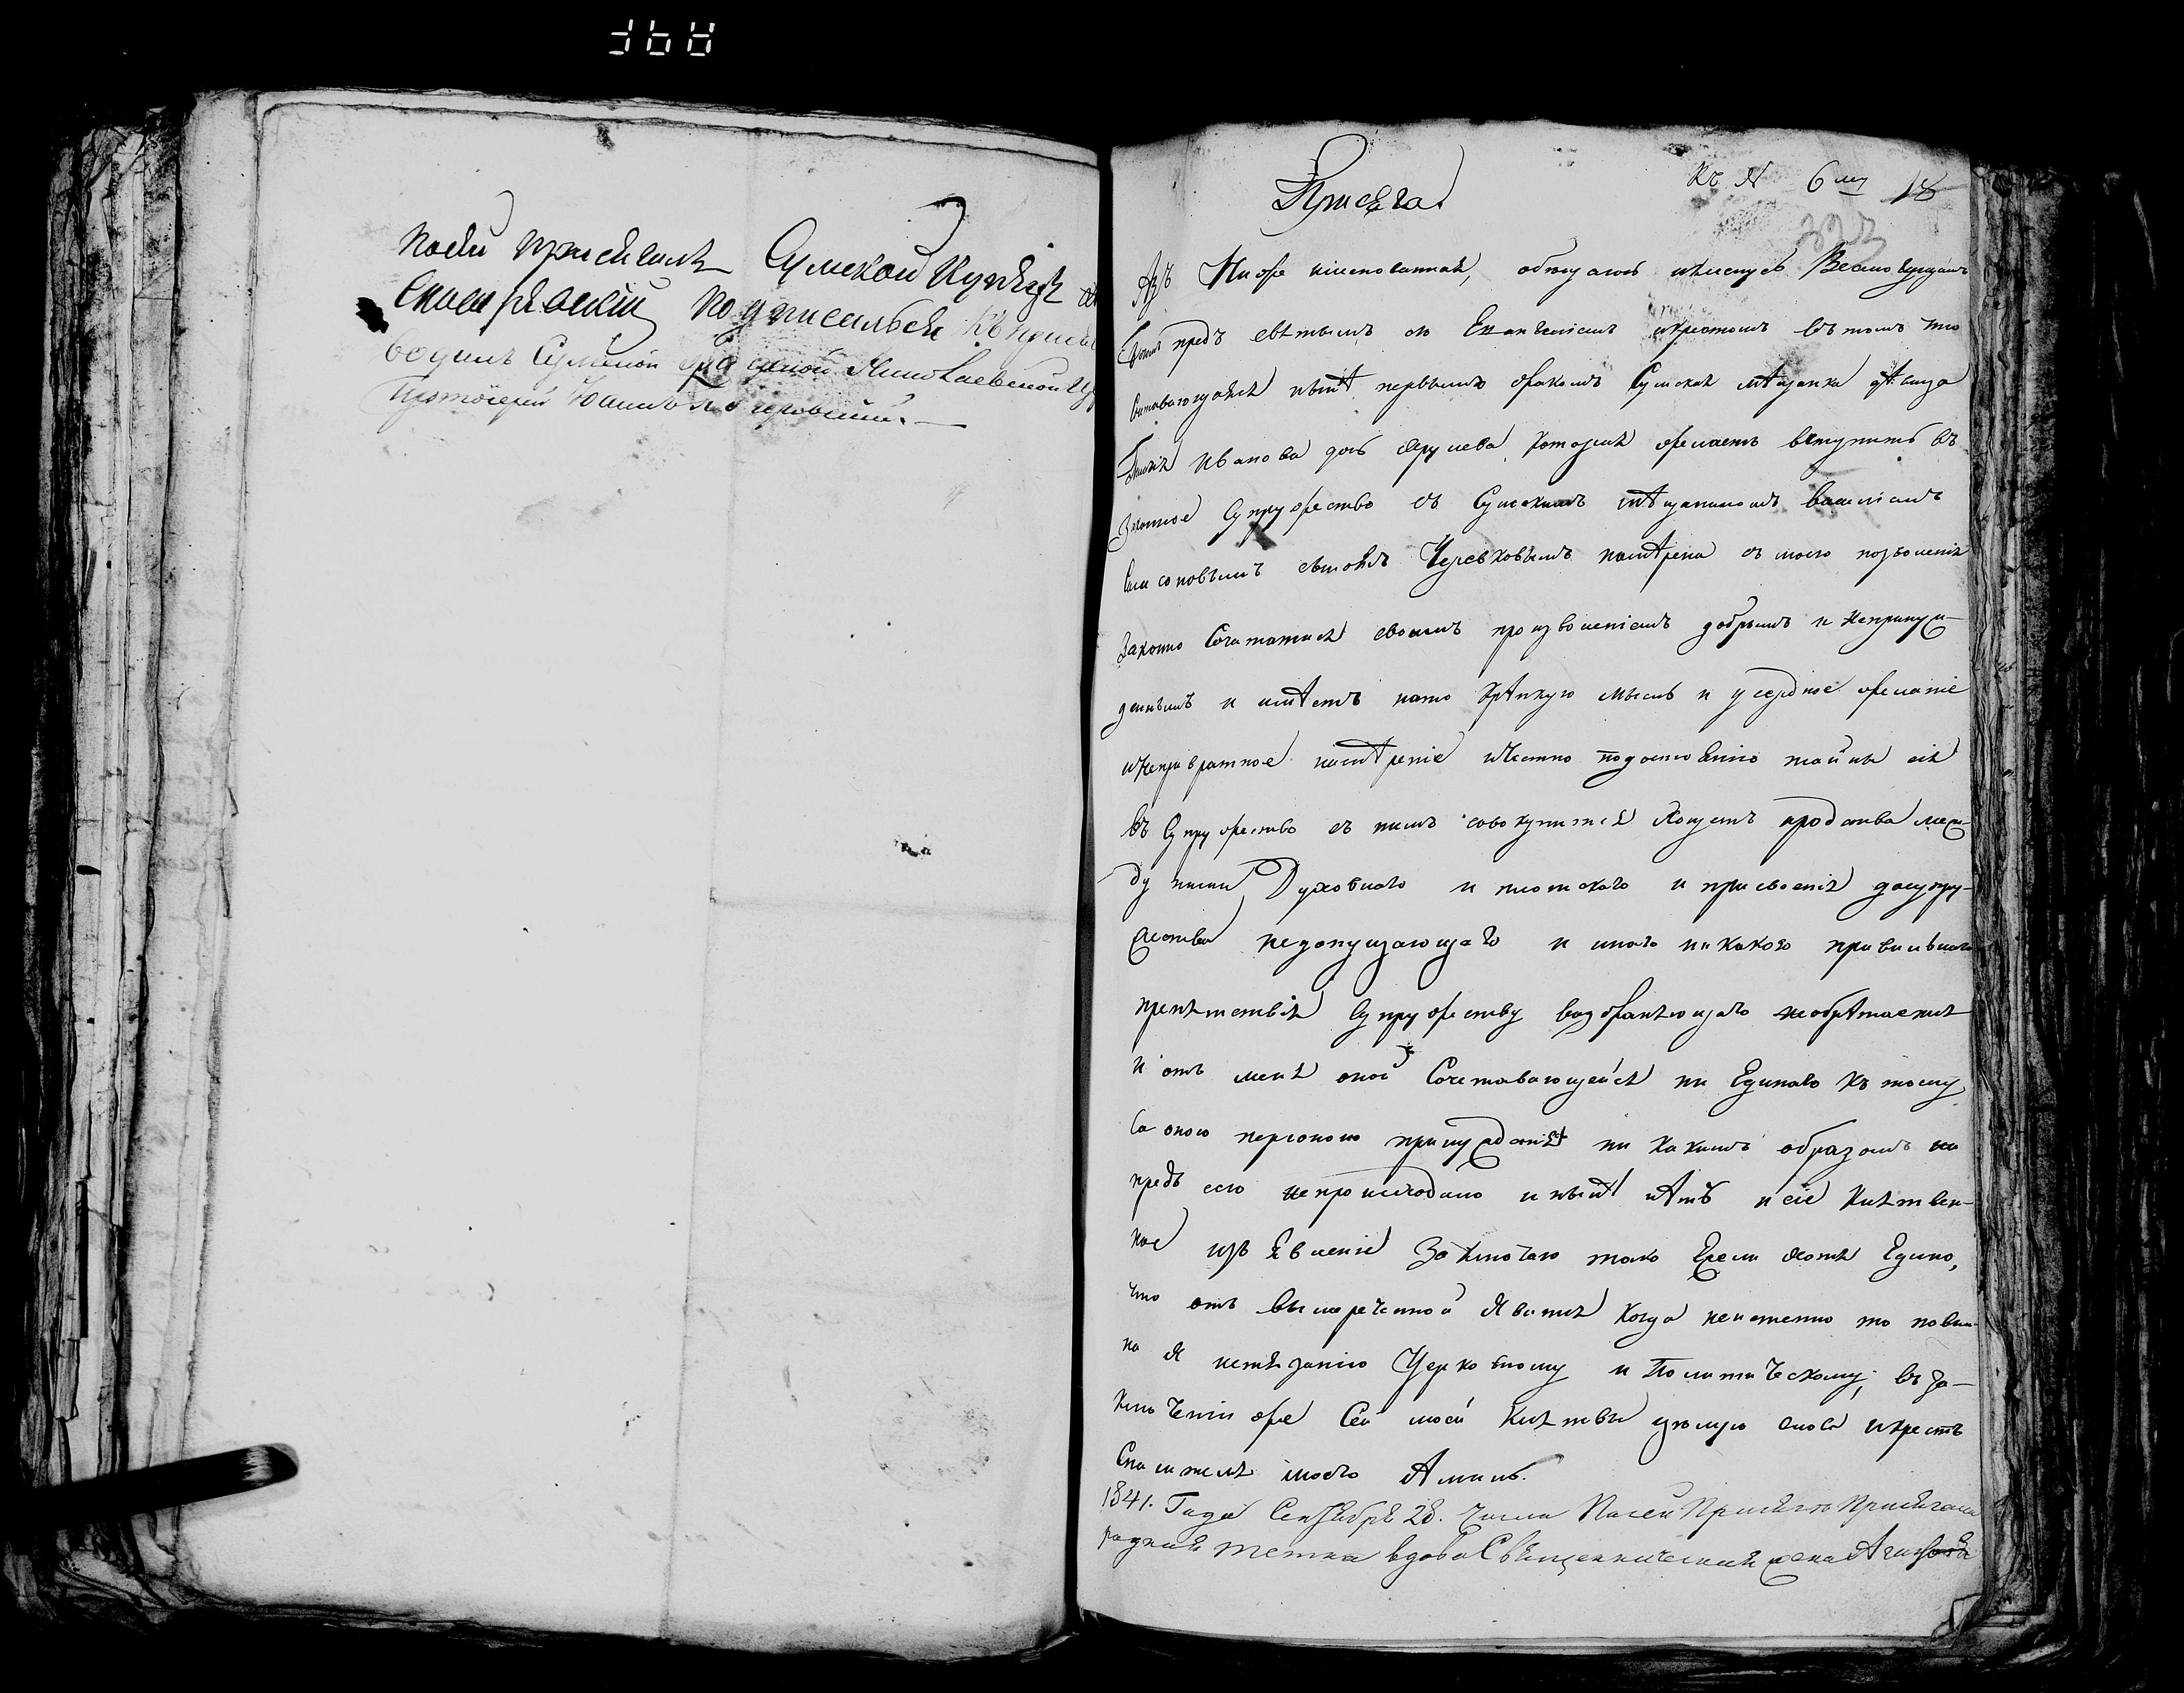 Посей присягалъ Сумской Купецъ
подписалься Къ присягѣ
водилъ Сумской градской Николаевской
Протоіерей Іоаннъ
Къ № 6му 18
Присяга
Азъ Ниже именованная, обещаюсь и кленусь Всемогущимъ
Богомъ предъ святымъ его Евангелиемъ и крестомъ въ томъ что
Сочетавающаяся нынѣ первымъ бракомъ Сумская мѣщанка дѣвица
Иванова дочь которая желаетъ вступить въ
Законное Супружество съ Сумскимъ мѣщаниномъ
сыномъ Черевковымъ намѣрена съ моего позволения
Законно Сочетатися своимъ произволениемъ добрымъ и Непринуж-
деннымъ и имѣетъ нато Крѣпкую мысль и усердное желание
и Непревратное намѣрение и Честно подостоянию тайны сия
въ Супружество съ нимъ совокупитися Хощетъ родства меж-
ду ними Духовнаго и плотскаго и присвоения досупру-
жества недопущающаго и инаго никакого правильнаго
препятствия Супружеству возбраняющаго необрѣтается
и отъ меня оной Сочетавающейся ни Единаго къ тому
Со оною персоною принуждения ни какимъ образомъ на
предъ сего непроисходило и нынѣ нѣтъ и сие Клятвен-
ное изъявление Заключаю тако Ежели хотя Едино,
что отъ вышереченной Явится Когда неистенно то повин-
на я истязанию Церковному и Политическому; въ За-
ключении же Сей моей Клятвы цѣлую слова и крестъ
Спасителя моего Аминь.
1841. Года Сентября 28. Числа Посей Присягѣ Присягала
родная тетка вдова Священническая жена